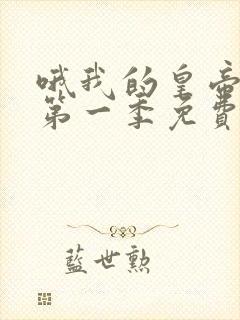 哦我的皇帝
第一季免費
藍世勲